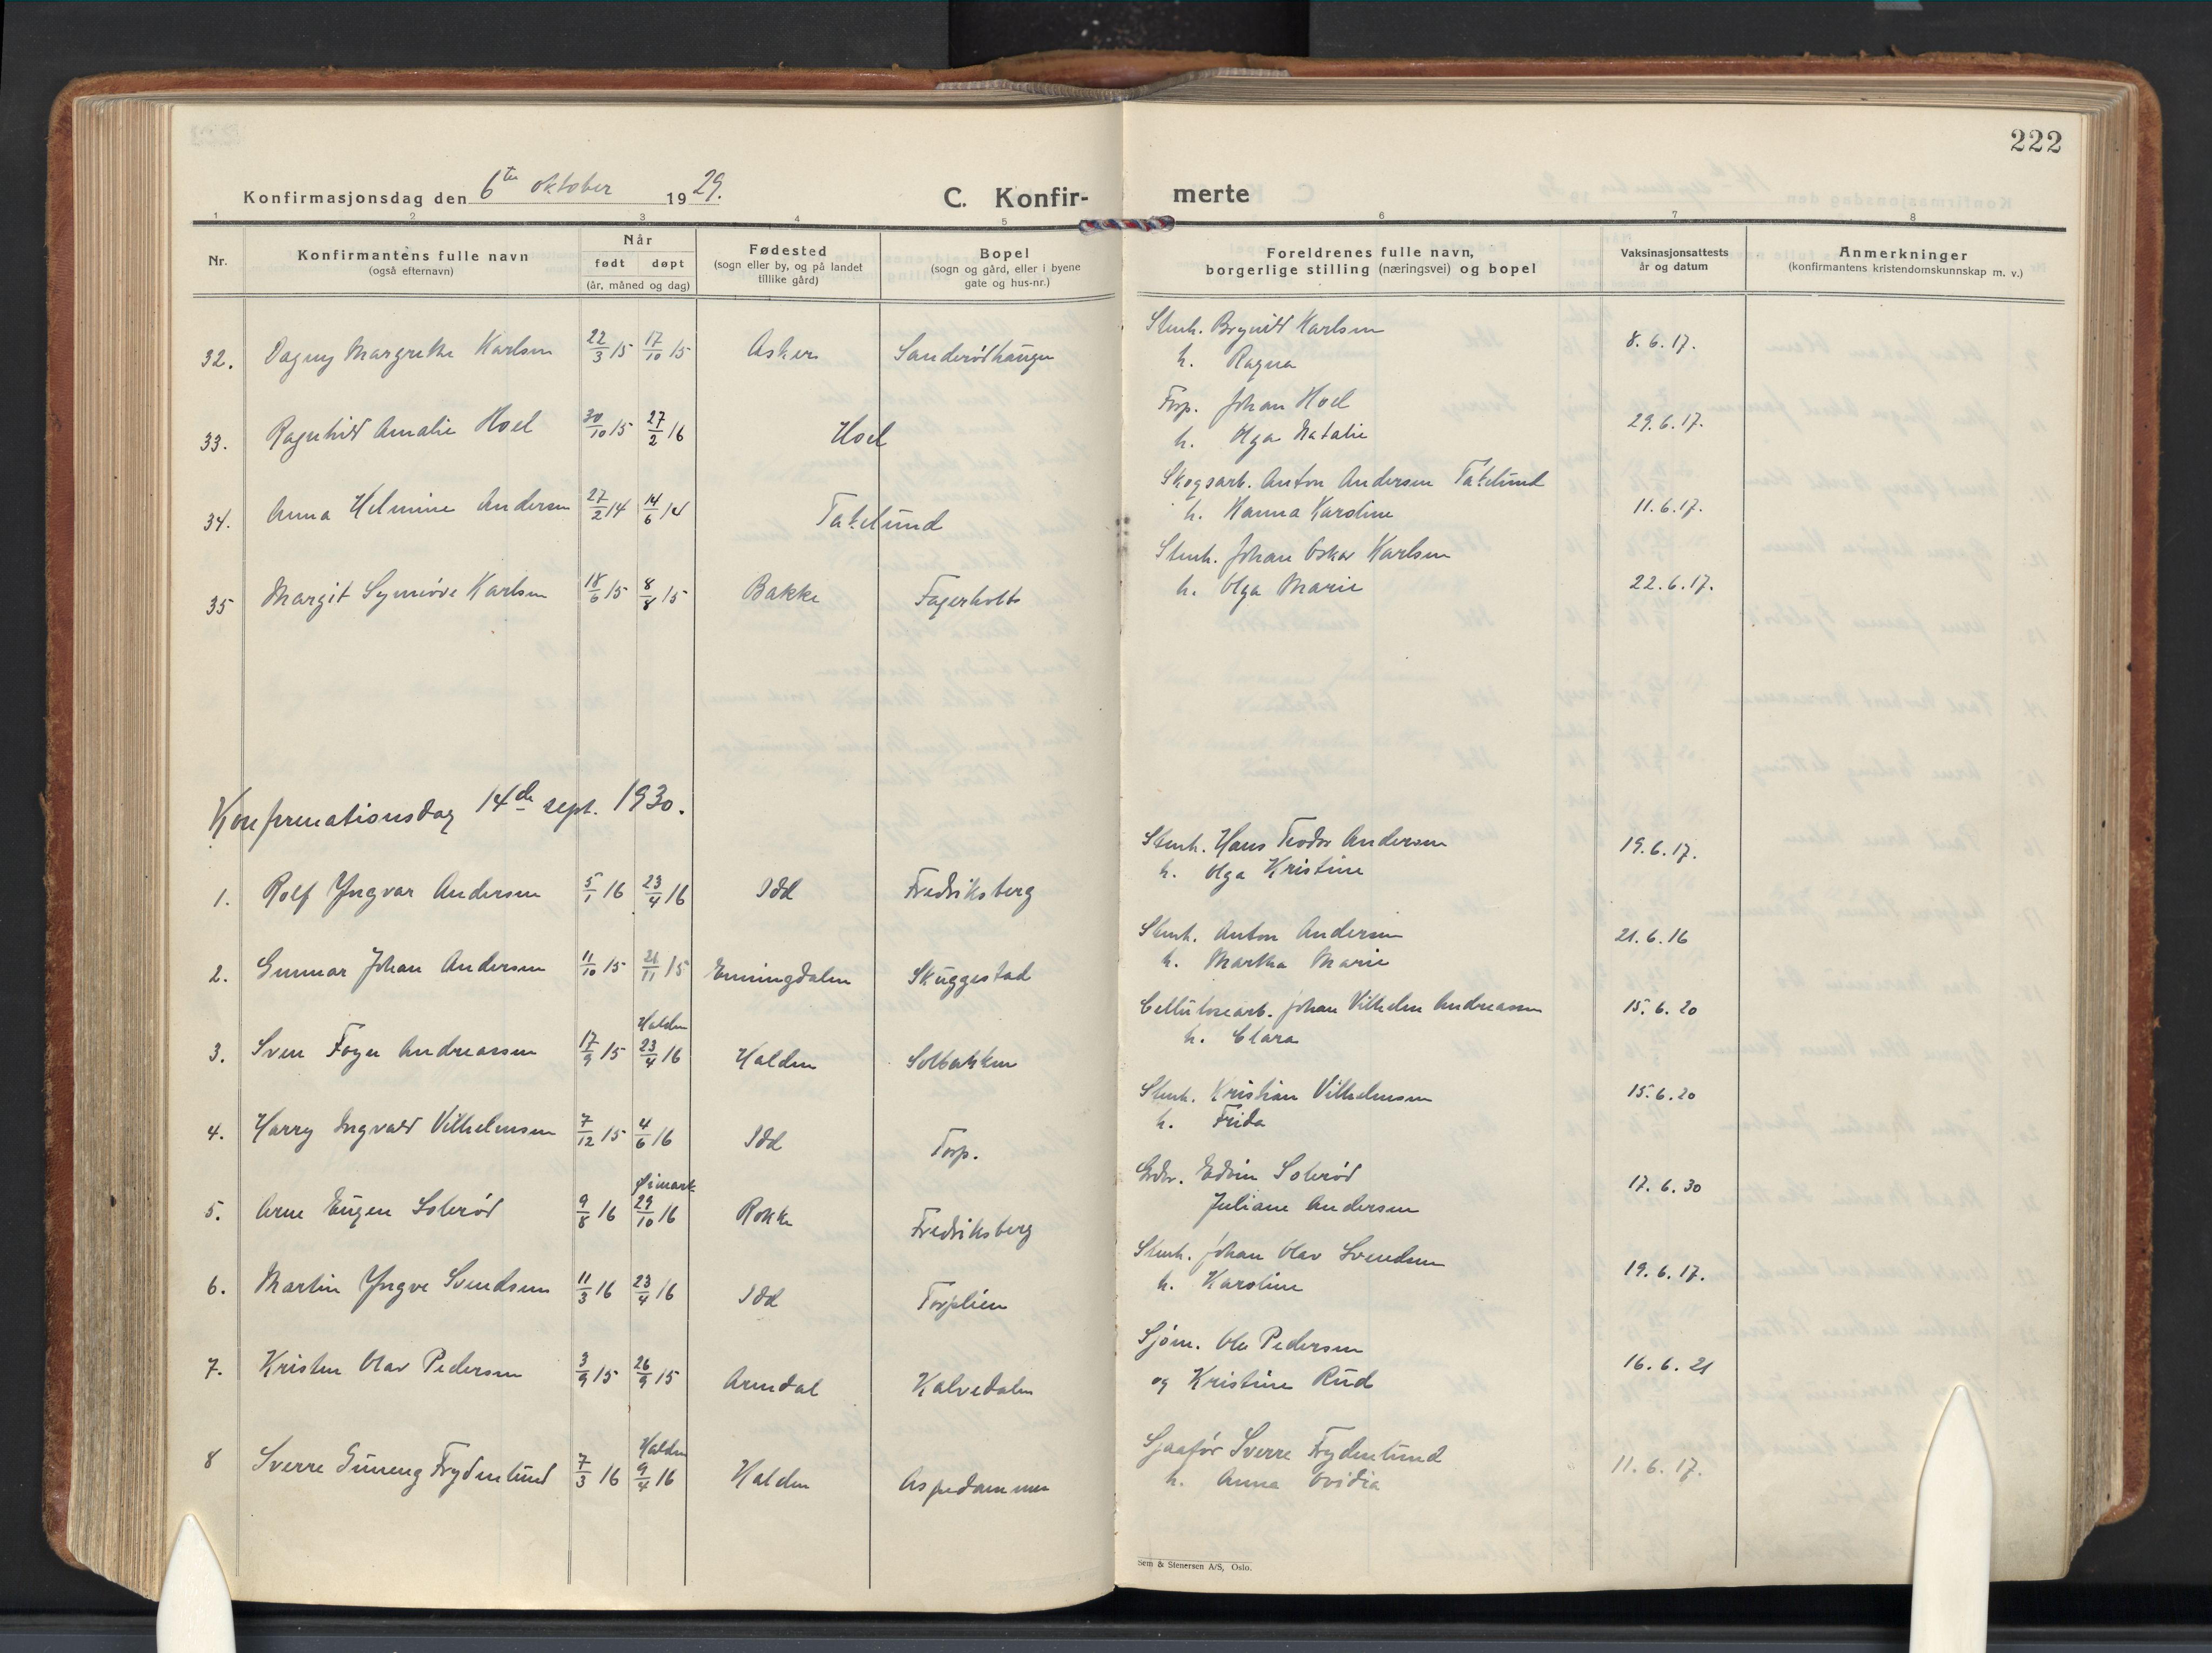 222
Konfirmasjonsdag den 6te oktober 1929.
C. Konfir-
merte
1 2 3 4 5 6 7 8
Nr.
Konfirmantens fulle navn
(også efternavn)
Når
født døpt
(år, måned og dag)
Fødested
(sogn eller by, og på landet
tillike gård)
Bopel
(sogn og gård, eller i byene
gate og hus-nr.)
Foreldrenes fulle navn,
borgerlige stilling (næringsvei) og bopel
Vaksinasjonsattests
år og datum
Anmerkninger
(konfirmantens kristendomskunnskap m. v.)
32. Dagny Margrethe Karlsen 22/3 15 17/10 15 Asker Sanderødhaugen
Stenh. Brynild Karlsen
h. Ragna
8.6.17.
33. Ragnhild Amalie Hoel 30/10 15 27/2 16 Hoel
Forp. Johan Hoel
h. Olga Natalie
29.6.17.
34. Anna Helmine Andersen 27/2 14 14/6 14
Skogsarb. Anton Andersen
h. Hanna Karoline
11.6.17.
35 Margit Synnøve Karlsen 18/6 15 8/8 15 Bakke Fagerholt
Stenh. Johan Oskar Karlsen
h. Olga Marie
22.6.17.
Konfirmationsdag 14de sept. 1930.
1. Rolf Yngvar Andersen 5/1 16 23/4 16 Idd Fredriksberg
Stenh. Hans Teodor Andersen
h. Olga Kristine
19.6.17.
2. Gunnar Johan Andersen 11/10 15 21/11 15 Enningdalen Skuggestad
Stenh. Anton Andersen
h. Martha Marie
21.6.16
Halden
3. Sven Foyn Andreassen 17/9 15 23/4 16 Halden Solbakken
Cellulosearb. Johan Vilhelm Andreassen
h. Clara
15.6.20
4. Harry Ingvald Vilhelmsen 7/12 15 4/6 16 Idd Torp.
Stenh. Kristian Vilhelmsen
h. Frida
15.6.20
Øimark
5. Arne Eugen Solerød 9/8 16 29/10 16 Rokke Fredriksberg
Grdbr. Edvin Solerød
Juliane Andersen
17.6.30
6. Martin Yngve Svendsen 11/3 16 23/4 16 Idd Torplien
Stenh. Johan Olav Svendsen
h. Karoline
19.6.17.
7. Kristen Olav Pedersen 3/9 15 26/9 15 Arendal Kalvedalen
Sjøm. Ole Pedersen
og Kristine Rud
16.6.21
Halden
8 Sverre Frydenlund 7/3 16 9/4 16 Halden Aspedammen
Sjaafør Sverre Frydenlund
h. Anna Ovidia
11.6.17.
Sem & Stenersen A/S, Oslo.